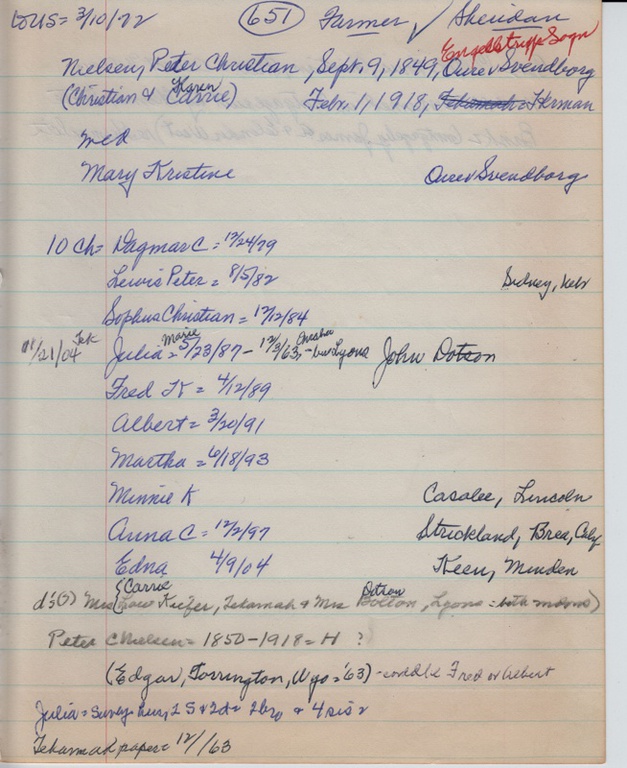 to US = 3/10/72 651 Farmer ✓ Sheridan
Engelstruppe Sogn
Nielsen, Peter Christian, Sept. 9, 1849, Oure Svendborg
Karen
(Christian & Carrie) Feb. 1, 1918, Tekamah = Herman
med
Mary Kristine Oure Svendborg
10 Ch = Dagmar C = 12/24/79
Lewis Peter = 8/5/82 Sidney, Nebr
Sophus Christian = 12/12/84
Marie Omaha
11/21/04 Tek Julia = 5/23/87 - 12/3/63, - bur Lyons John Dotson
Fred K = 4/12/89
Albert = 3/20/91
Martha = 6/18/93
Minnie K Casalee, Lincoln
Anna C = 12/2/97 Strickland, Brea, Calif
Edna 4/9/04 Keen, Minden
(Carrie Dotson
d's(?) Mrs Kiefer, Tekamah & Mrs Bolton, Lyons = both
Peter C Nielsen = 1850-1918 = H ?
(Edgar, Torrington, Wyo = '63) - could be Fred or Albert
Julia = Surv = hus, 2 S & 2 d = 2 bro & 4 sis
Tekamah paper = 12/ /63